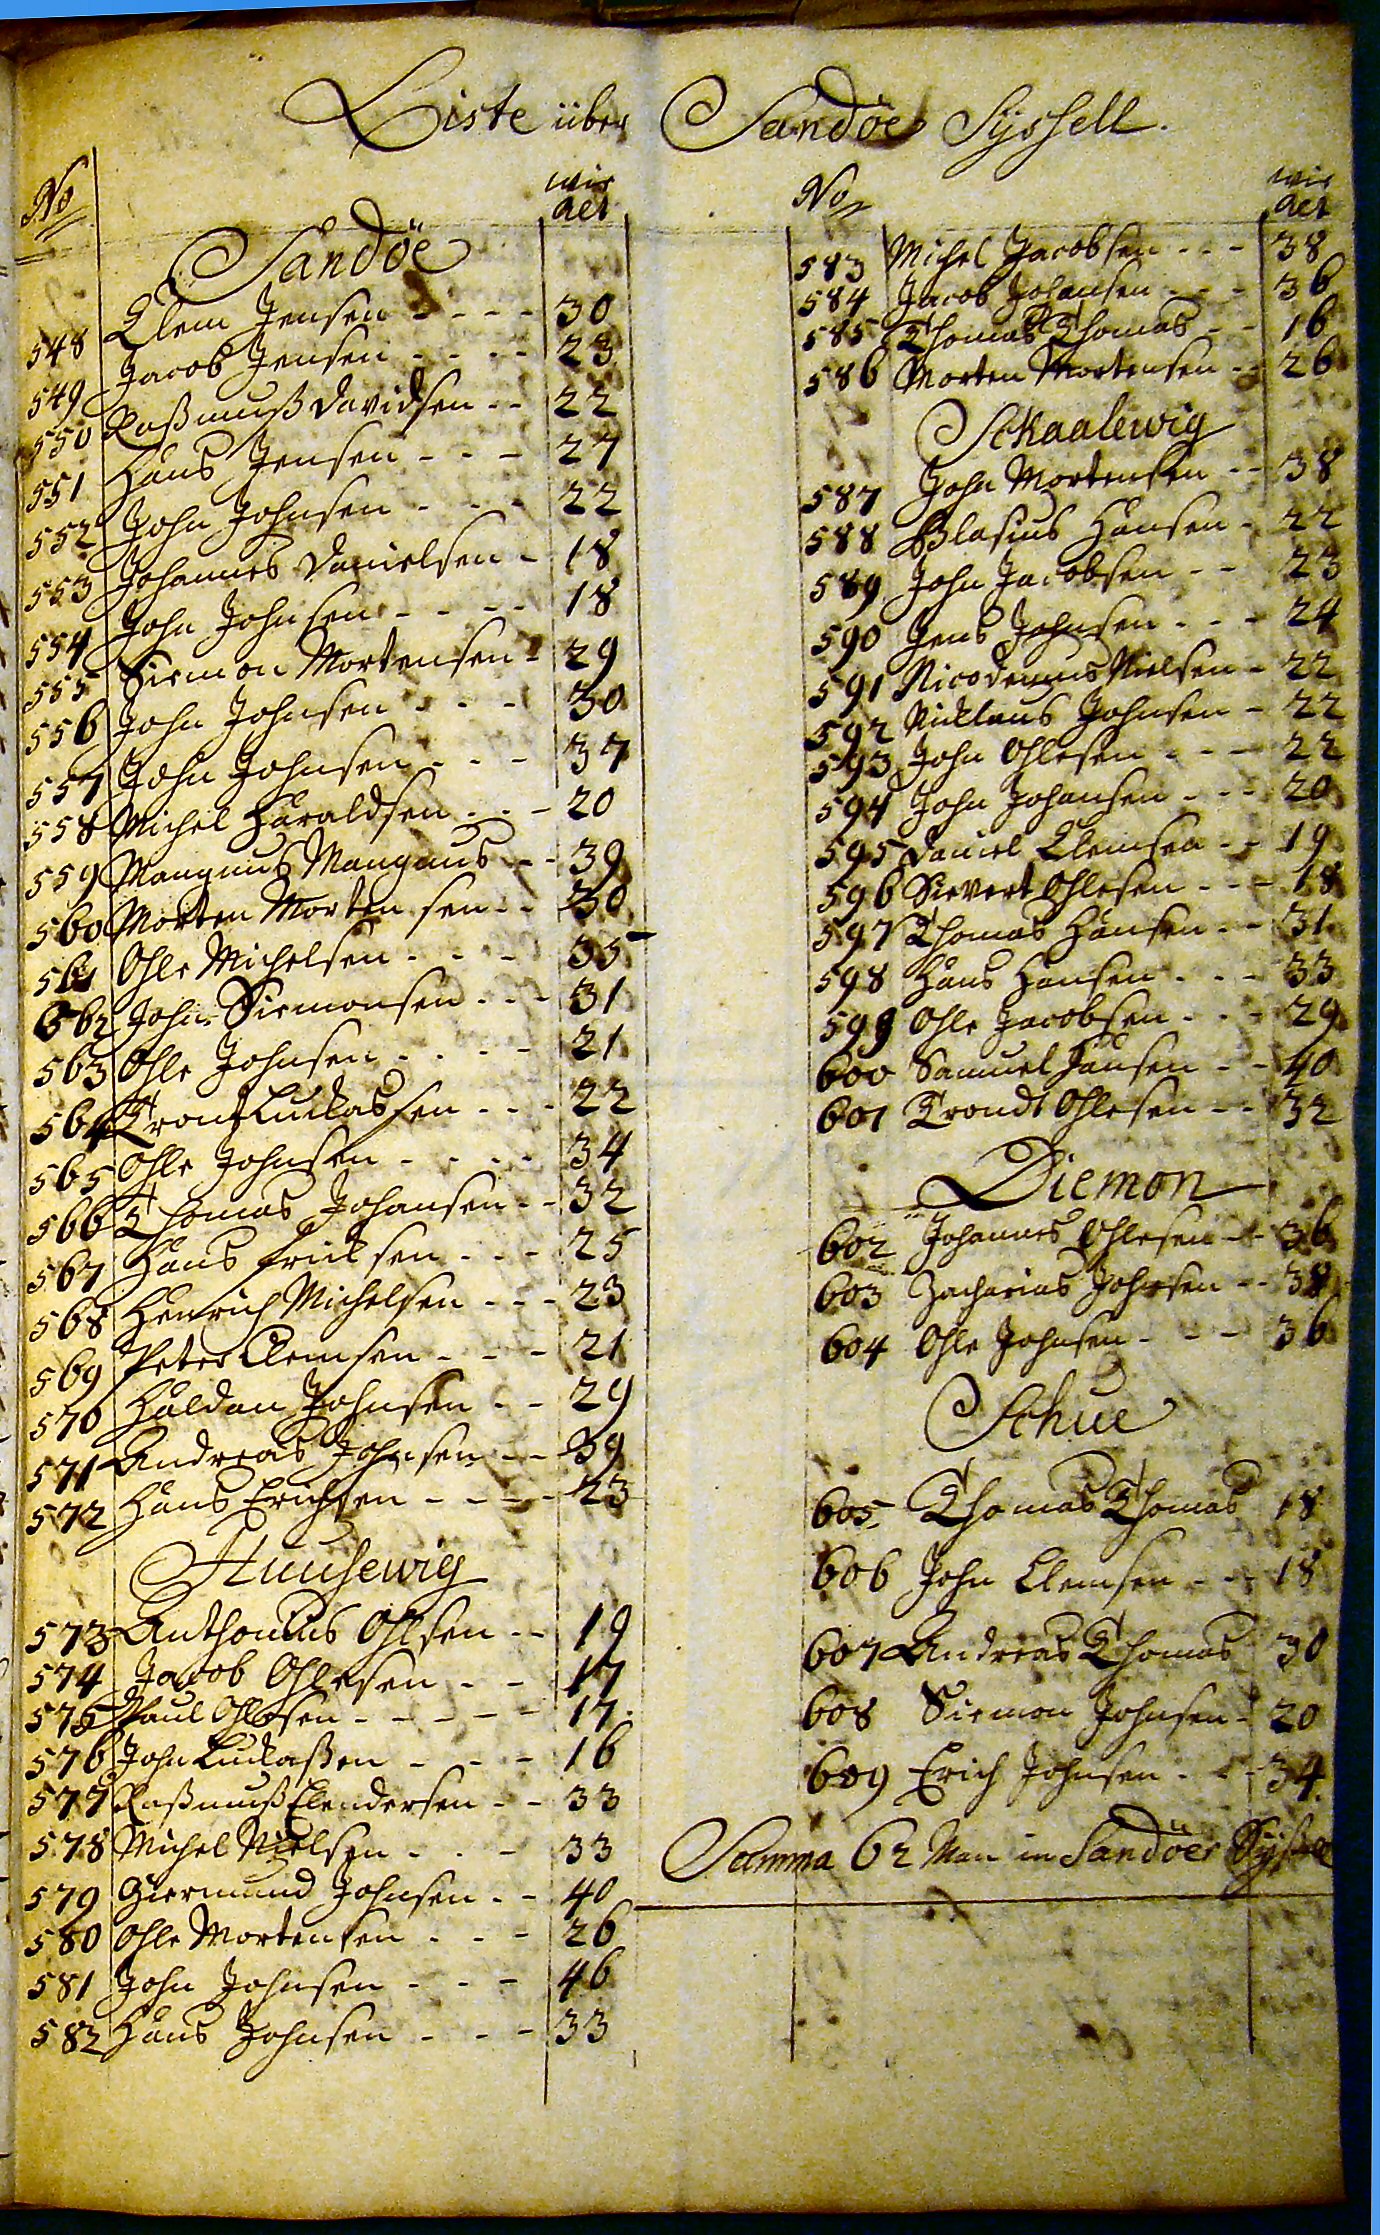 Liste über Sandöe Syssell.
No wie alt
Sandöe
548 Clem Jensen - - - - 30
549 Jacob Jensen - - - - 23
550 Raßmuß Davidsen - - 22
551 Hans Jensen - - - 27
552 John Johnsen - - - 22
553 Johannes Danielsen - 18
554 John Johnsen - - - - 18
555 Siemon Mortensen - 29
556 John Johnsen - - - 30
557 John Johnsen - - - 37
558 Michel Haraldsen - - - 20
559 Mangnus Mangnus - - 39
560 Morten Mortensen - - 30
561 Ohle Michelsen - - - 35
562 John Siemonsen - - - 31
563 Ohle Johnsen - - - - 21
564 Trond Luckassen - - - 22
565 Ohle Johnsen - - - - 34
566 Thomas Johansen - - 32
567 Hans Fricksen - - - 25
568 Henrich Michelsen - - - 23
569 Peter Clemsen - - - 21
570 Haldan Johnsen - - 29
571 Andreas Johnsen - - 39
572 Hans Erichsen - - - - 23
Huusewig
573 Anthonius Ohlsen - - 19
574 Jacob Ohlesen - - 17
575 Paul Ohlesen - - - - - 17
576 John Luckaßen - - - 16
577 Raßmuß Elendersen - - 33
578 Michel Nielsen - - - 33
579 Giermund Johnsen - - 40
580 Ohle Mortensen - - - 26
581 John Johnsen - - - 46
582 Hans Johnsen - - - 33
No wie alt
583 Michel Jacobsen - - - 38
584 Jacob Johansen - - - 36
585 Thomas Thomas - - 16
586 Morten Mortensen - - 26
Skaalewig
587 John Mortensen - - 38
588 Blasius Hansen - 22
589 John Jacobsen - - 23
590 Jens Johnsen - - - 24
591 Nicodemus Nielsen - 22
592 Nicklaus Johnsen - 22
593 John Ohlesen - - - 22
594 John Johansen - - - 20
595 Daniel Clemsen - - 19
596 Sievert Ohlesen - - - 18
597 Thomas Hansen - - 31
598 Hans Hansen - - - 33
599 Ohle Jacobsen - - - 29
600 Samuel Hansen - - 40
601 Trondt Ohlesen - - 32
Diemon
602 Johannes Ohlesen - - 36
603 Zacharias Johnsen - - 38
604 Ohle Johnsen - - - 36
Schue
605 Thomas Thomas 18
606 John Clemsen - - - 18
607 Andreas Thomas 30
608 Siemon Johnsen - 20
609 Erich Johnsen - - - 34
Summa 62 Man in Sandöes Syssel